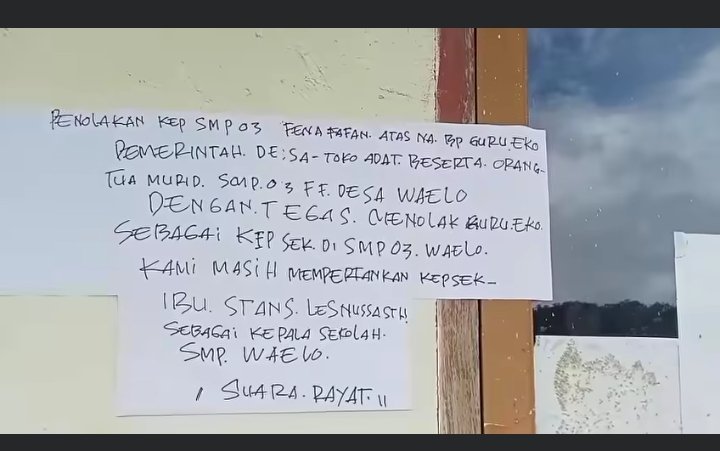 PENOLAKAN KEP SMP 03 FENA FAFAN. ATAS NA. BP GURU. EKO
PEMERINTAH. DE:SA-TOKO ADAT. BESERTA. ORANG-
TUA MURID. SMP. 03 FF. DESA WAELO
DENGAN. TEGAS. MENOLAK GURU. EKO.
SEBAGAI KEPSEK. DI SMP 03. WAELO.
KAMI MASIH MEMPERTANKAN KEPSEK-
IBU. STANS. LESNUSSASTH
SEBAGAI KEPALA SEKOLAH.
SMP. WAELO.
" SUARA. RAYAT. "